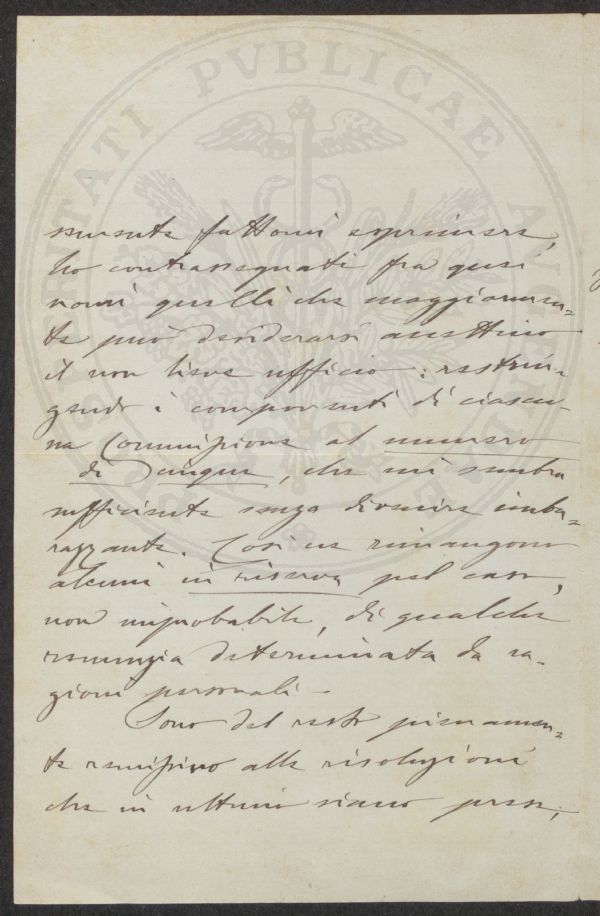 PROSPERITATI PVBLICAE AVGENDAE
mente fattomi esprimere,
ho contrassegnati fra quei
nomi quelli che maggiormen=
te può desiderarsi accettino
il non lieve ufficio: restrin=
gendo i componenti di ciascu=
na Commissione al numero
di Cinque, che mi sembra
sufficiente senza divenire imba=
razzante. Così ne rimangono
alcuni in riserva pel caso,
non improbabile, di qualche
renunzia determinata da ra=
gioni personali —
Sono del resto pienamen=
te remissivo alle risoluzioni
che in ultimo siano prese,